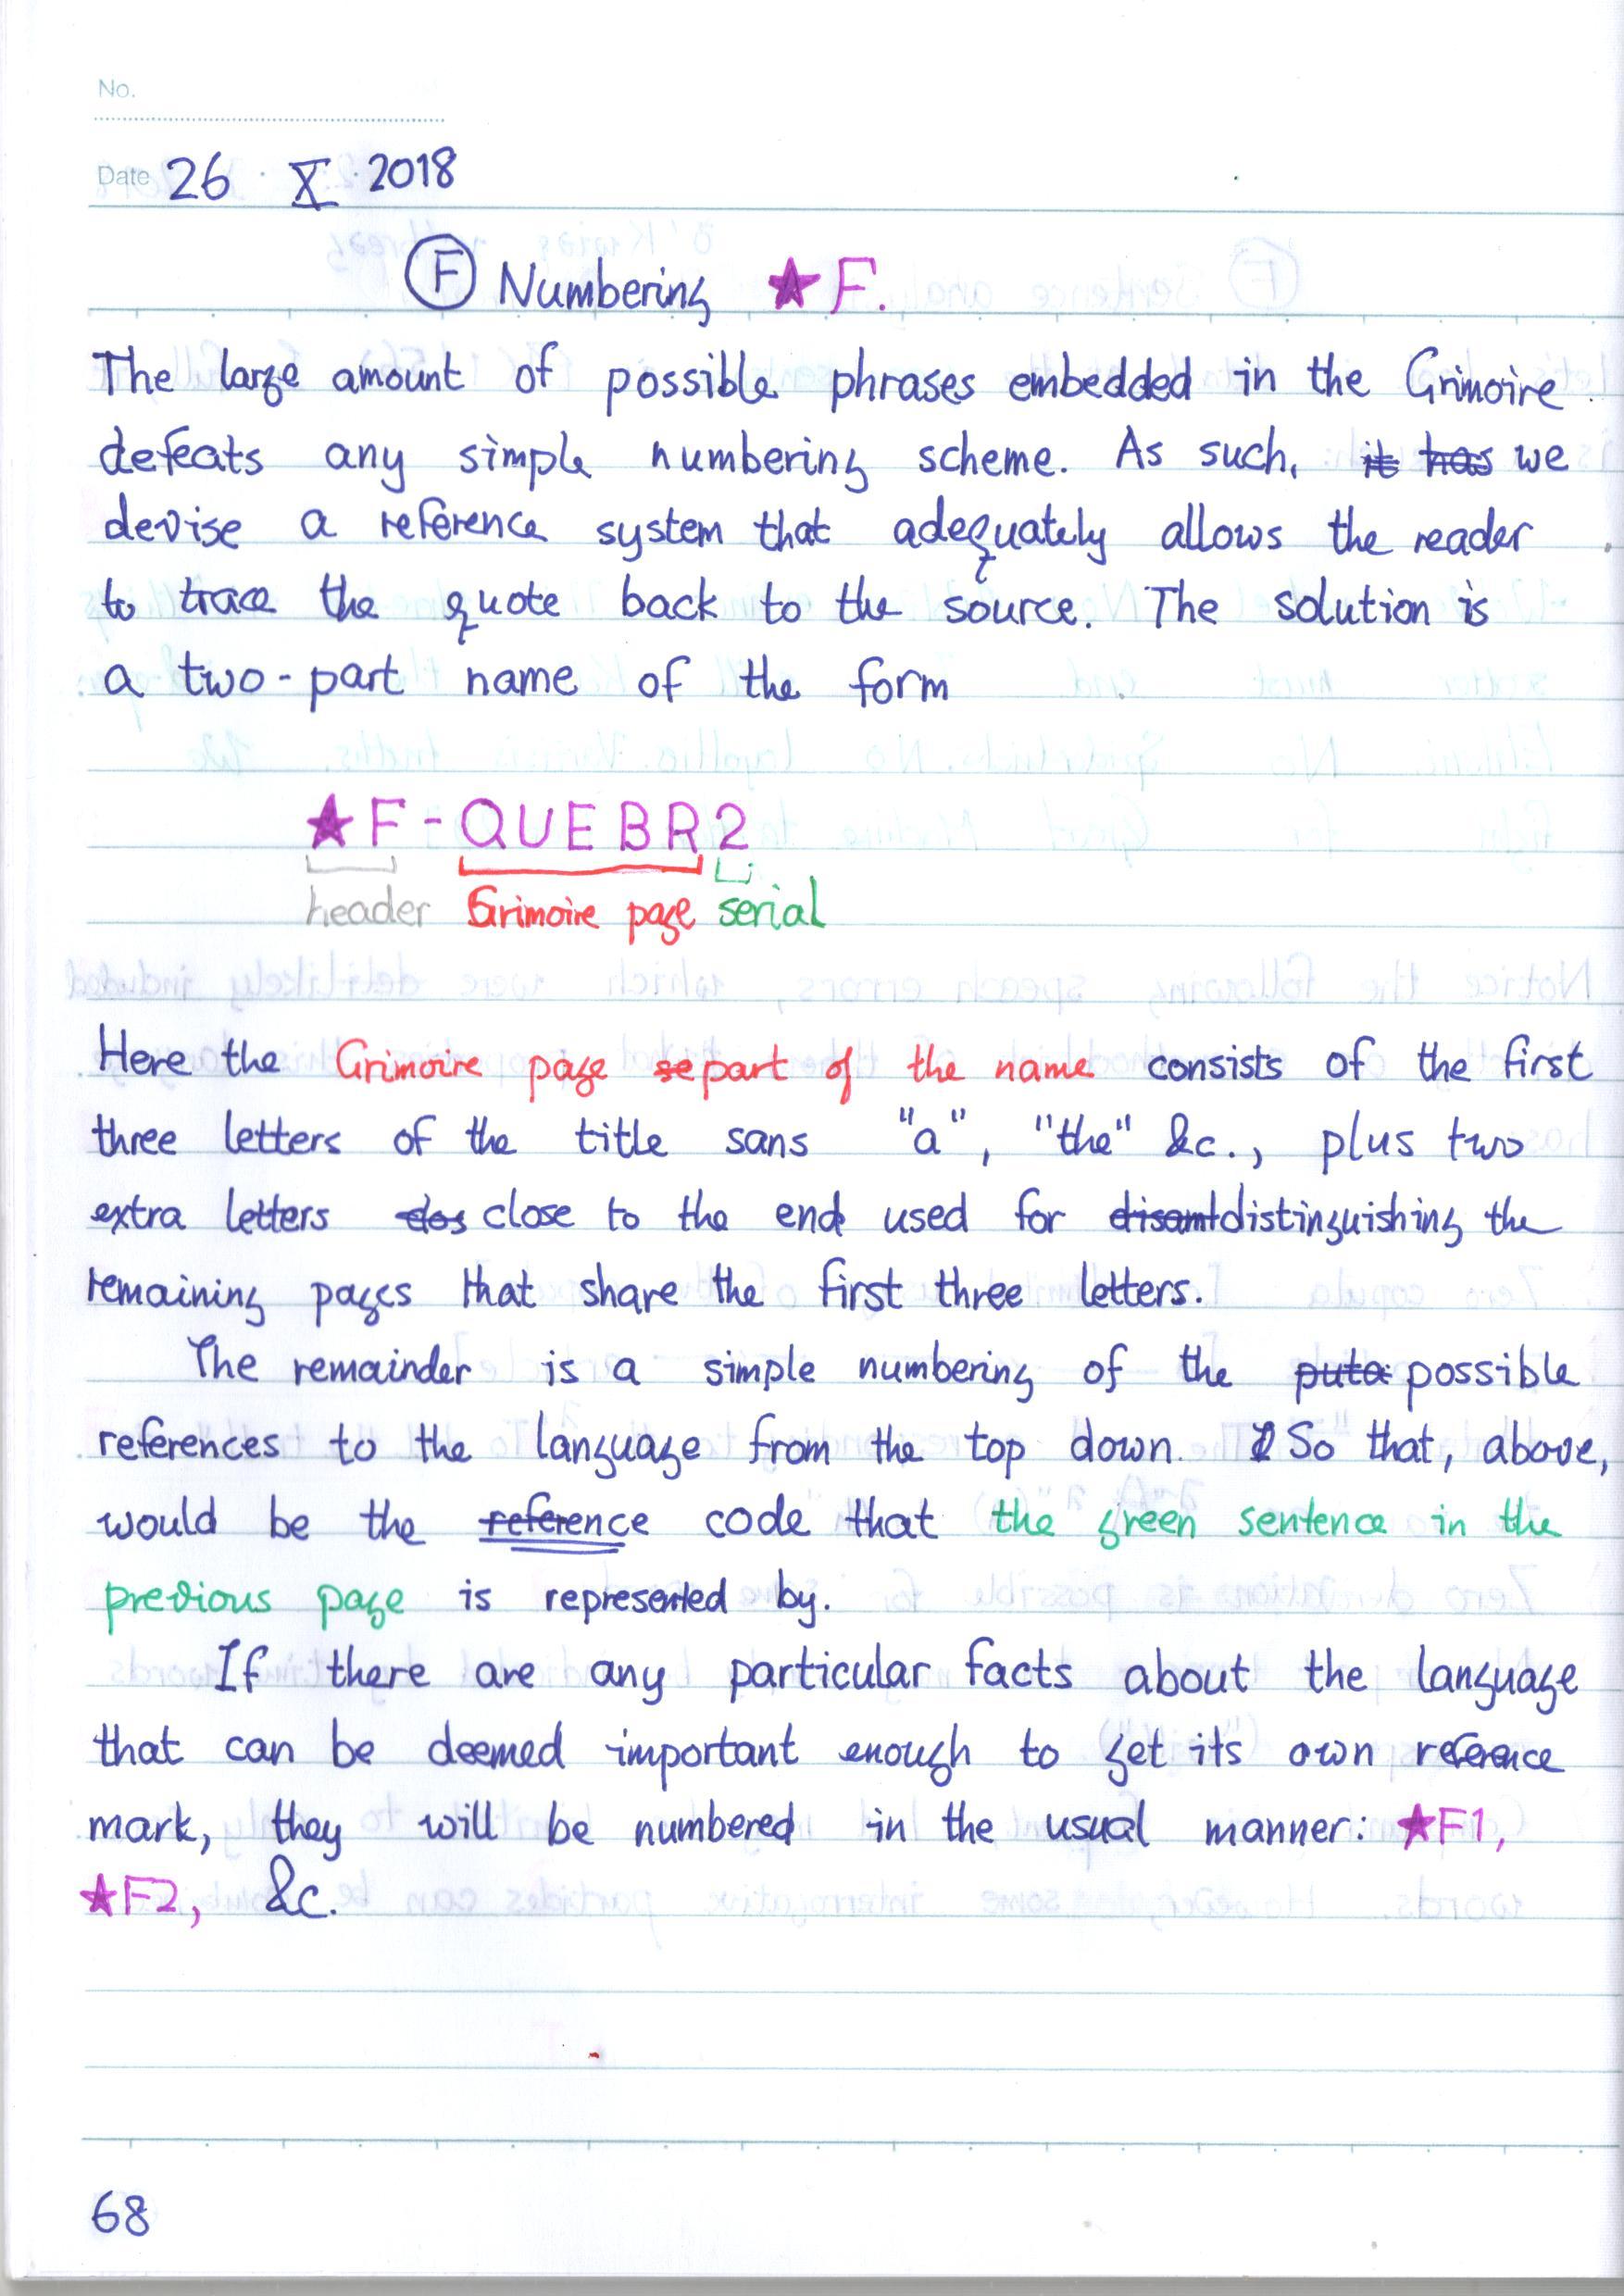 No.
Date 26 · X · 2018
Ⓕ Numbering ★F.
The large amount of possible phrases embedded in the Grimoire
defeats any simple numbering scheme. As such, it has we
devise a reference system that adequately allows the reader
to trace the quote back to the source. The solution is
a two-part name of the form
★F-QUEBR2
header Grimoire page serial
Here the Grimoire page se part of the name consists of the first
three letters of the title sans "a", "the" &c., plus two
extra letters clos close to the end used for disamt distinguishing the
remaining pages that share the first three letters.
The remainder is a simple numbering of the puta possible
references to the language from the top down. So that, above,
would be the reference code that the green sentence in the
previous page is represented by.
If there are any particular facts about the language
that can be deemed important enough to get its own reference
mark, they will be numbered in the usual manner: ★F1,
★F2, &c.
68